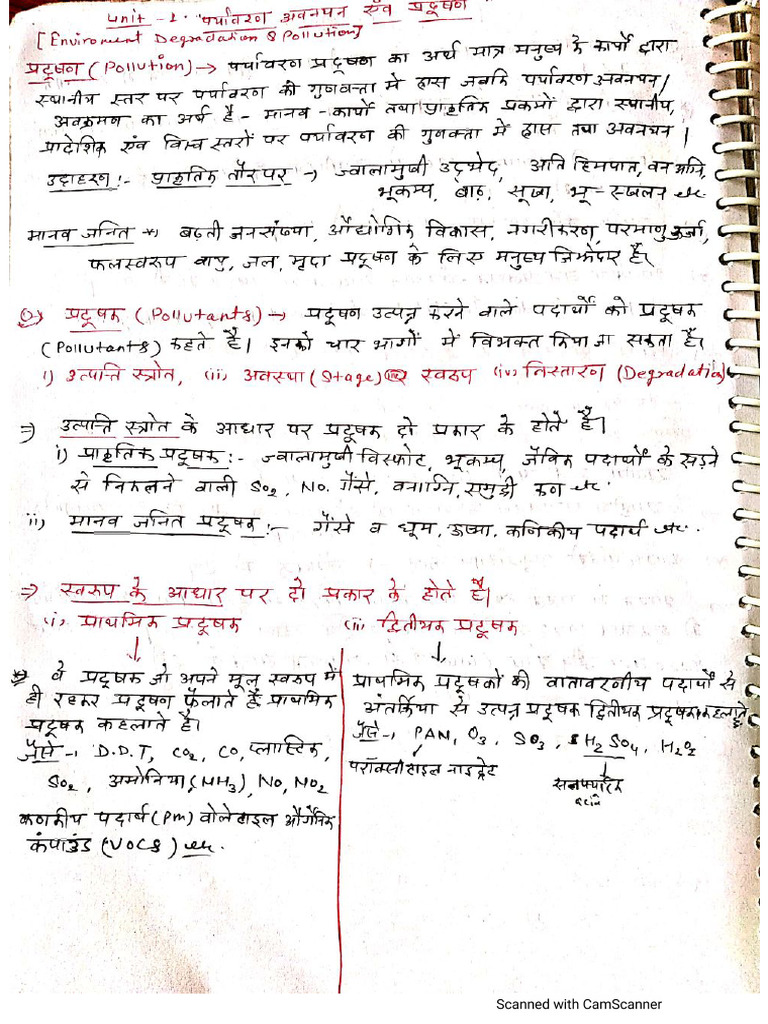 Unit - 1. पर्यावरण अवनयन एंव प्रदूषण
[Enviroment Degradation & Pollution]
प्रदूषण (Pollution) → पर्यावरण प्रदूषण का अर्थ मात्र मनुष्य के कार्यो द्वारा
स्थानीय स्तर पर पर्यावरण की गुणवत्ता मे ह्रास जबकि पर्यावरण अवनयन/
अवक्रमण का अर्थ है - मानव - कार्यो तथा प्राकृतिक प्रक्रमो द्वारा स्थानीय,
प्रादेशिक एंव विश्व स्तरों पर पर्यावरण की गुणवत्ता में ह्रास तथा अवनयन।
उदाहरण :- प्राकृतिक तौर पर → ज्वालामुखी उद्भेद, अति हिमपात, वन अग्नि,
भूकम्प, बाढ़, सूखा, भू-स्खलन etc
मानव जनित → बढ़ती जनसंख्या, औद्योगिक विकास, नगरीकरण, परमाणु ऊर्जा,
फलस्वरुप वायु, जल, मृदा प्रदूषण के लिए मनुष्य जिम्मेदार है।
प्रदूषक (Pollutants) → प्रदूषण उत्पन्न करने वाले पदार्थों को प्रदूषक
(Pollutants) कहते है। इनको चार भागों में विभक्त किया जा सकता है।
i) उत्पत्ति स्त्रोत, (ii) अवस्था (Stage) स्वरुप (iv) निस्तारण (Degradation)
⇒ उत्पत्ति स्त्रोत के आधार पर प्रदूषक दो प्रकार के होते है।
i) प्राकृतिक प्रदूषक :- ज्वालामुखी विस्फोट, भूकम्प, जैविक पदार्थों के सड़ने
से निकलने वाली SO₂, NO. गैसे, वनाग्नि, समुद्री कण etc
ii) मानव जनित प्रदूषक :- गैंसे व धूम, ऊष्मा, कणिकीय पदार्थ etc.
⇒ स्वरुप के आधार पर दो प्रकार के होते है।
(i) प्राथमिक प्रदूषक (ii) द्वितीयक प्रदूषक
वे प्रदूषक जो अपने मूल स्वरुप में
ही रहकर प्रदूषण फैलाते है प्राथमिक
प्रदूषक कहलाते है।
जैसे → D.D.T, CO₂, CO, प्लास्टिक,
SO₂, अमोनिया (NH₃), NO, NO₂
कणकीय पदार्थ (Pm) वोलेटाइल और्गेनिक
कंपाउंड (VOCs) etc.
प्राथमिक प्रदूषकों की वातावरणीय पदार्थों से
अंतर्क्रिया से उत्पन्न प्रदूषक द्वितीयक प्रदूषक कहलाते
जैसे →, PAN, O₃, SO₃, H₂SO₄, H₂O₂
परॉक्सी नाइट्रेट
सल्फ्यूरिक
acid
Scanned with CamScanner